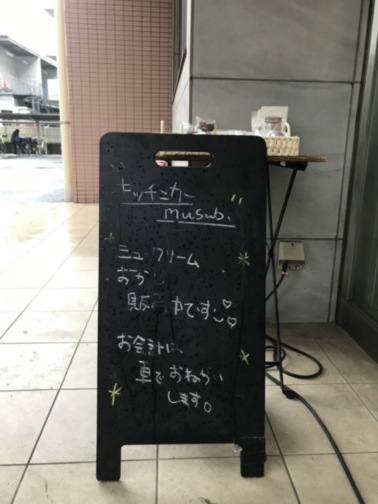 キッチンカー
musubi
ミニクリーム
おか
販 中です♡
お会計は、
車でおねがい
します。